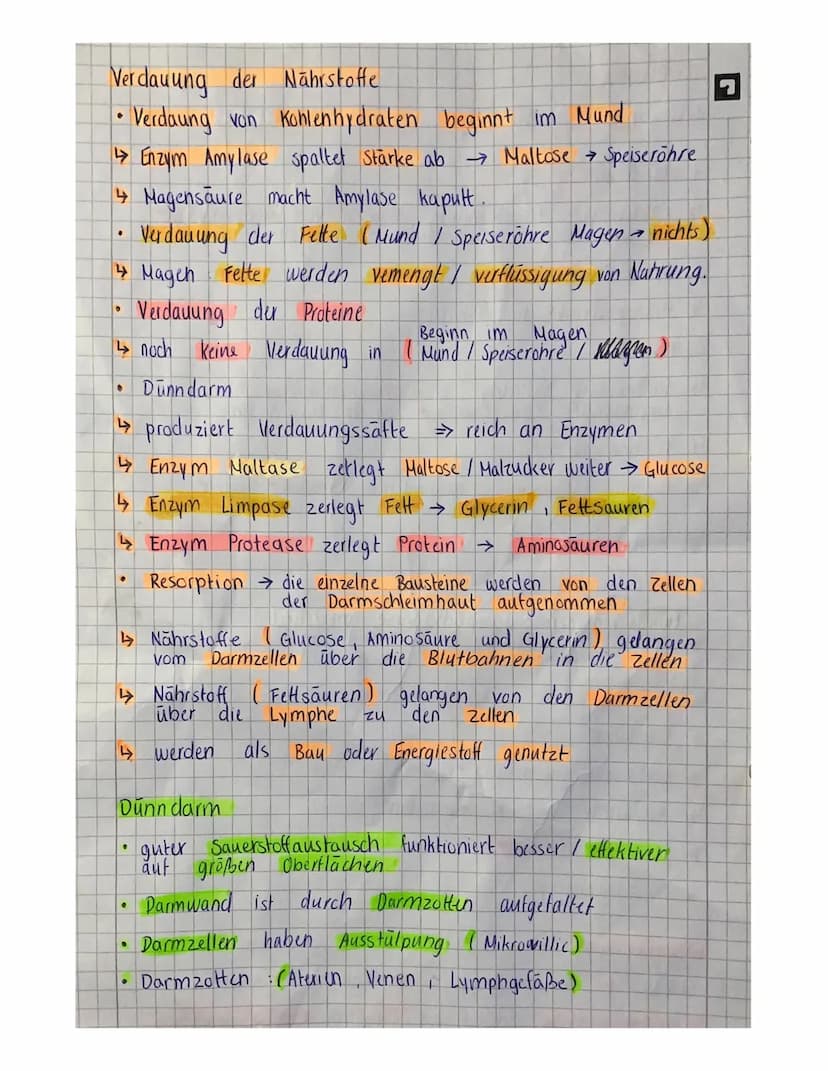 Verdauung der Nährstoffe
• Verdaung von Kohlenhydraten beginnt im Mund
↳ Enzym Amylase spaltet Stärke ab → Maltose → Speiseröhre
↳ Magensäure macht Amylase kaputt.
• Verdauung der Fette (Mund / Speiseröhre Magen → nichts)
↳ Magen Fette werden vemengt / verflüssigung von Nahrung.
• Verdauung der Proteine
Beginn im Magen
↳ noch keine Verdauung in (Mund / Speiseröhre / )
• Dünndarm
↳ produziert Verdauungssäfte ⇒ reich an Enzymen
↳ Enzym Maltase zerlegt Maltose / Malzucker weiter → Glucose
↳ Enzym Limpase zerlegt Fett → Glycerin , Fettsäuren
↳ Enzym Protease zerlegt Protein → Aminosäuren
• Resorption → die einzelne Bausteine werden von den Zellen
der Darmschleimhaut aufgenommen
↳ Nährstoffe (Glucose, Aminosäure und Glycerin) gelangen
vom Darmzellen über die Blutbahnen in die Zellen
↳ Nährstoff (Fettsäuren) gelangen von den Darmzellen
über die Lymphe zu den Zellen
↳ werden als Bau oder Energiestoff genutzt
Dünndarm
• guter Sauerstoffaustausch funktioniert besser / effektiver
auf größen Oberflächen
• Darmwand ist durch Darmzotten aufgefaltet
• Darmzellen haben Ausstülpung (Mikrovillic)
• Darmzotten : (Aterien , Venen , Lymphgefäße)